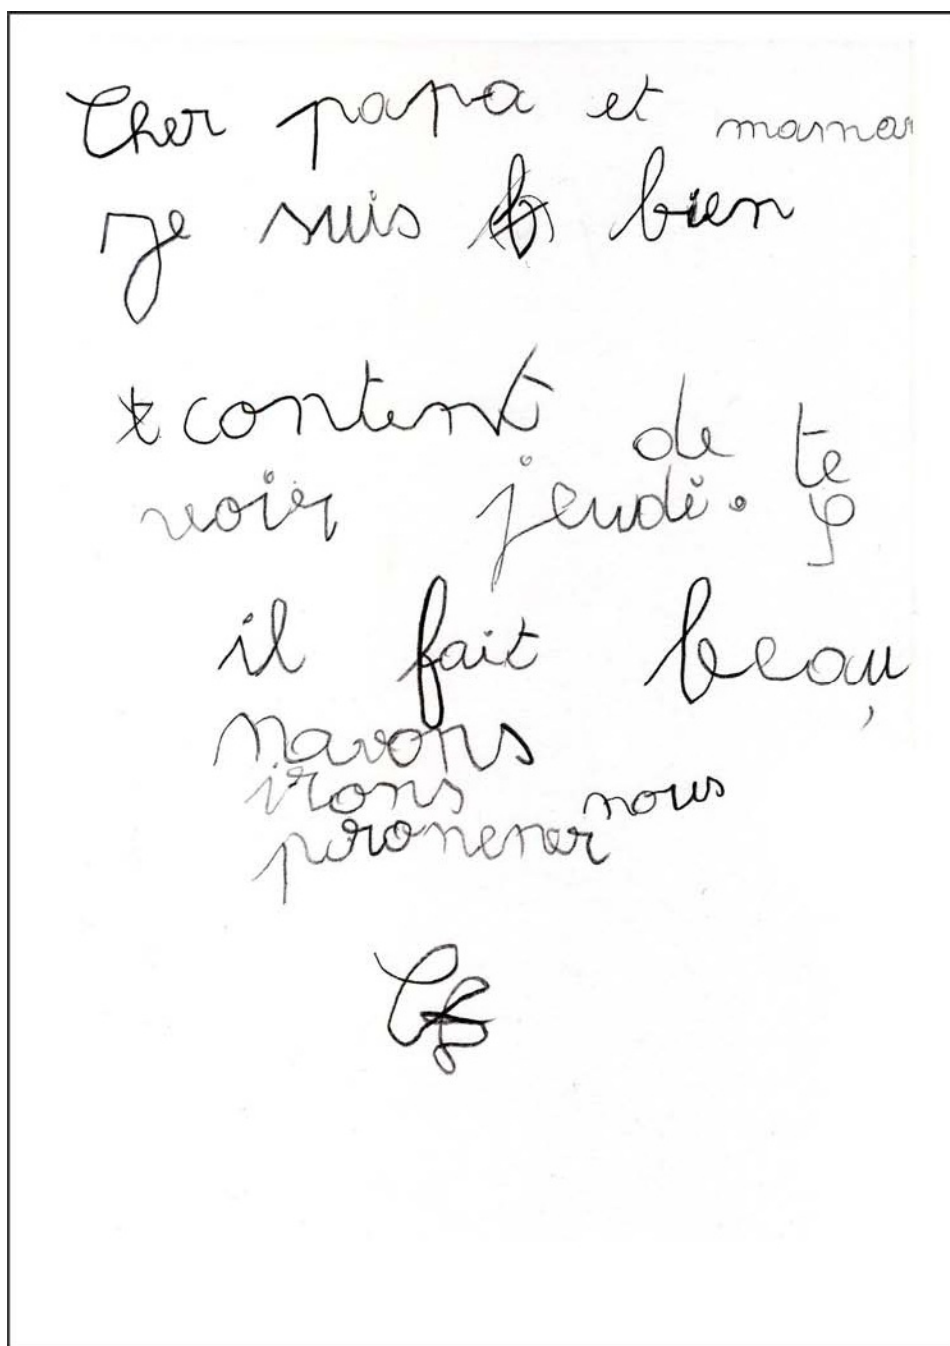 Cher papa et maman
je suis bien
content de te
voir jeudi.
il fait beau,
navons
irons nous
promener